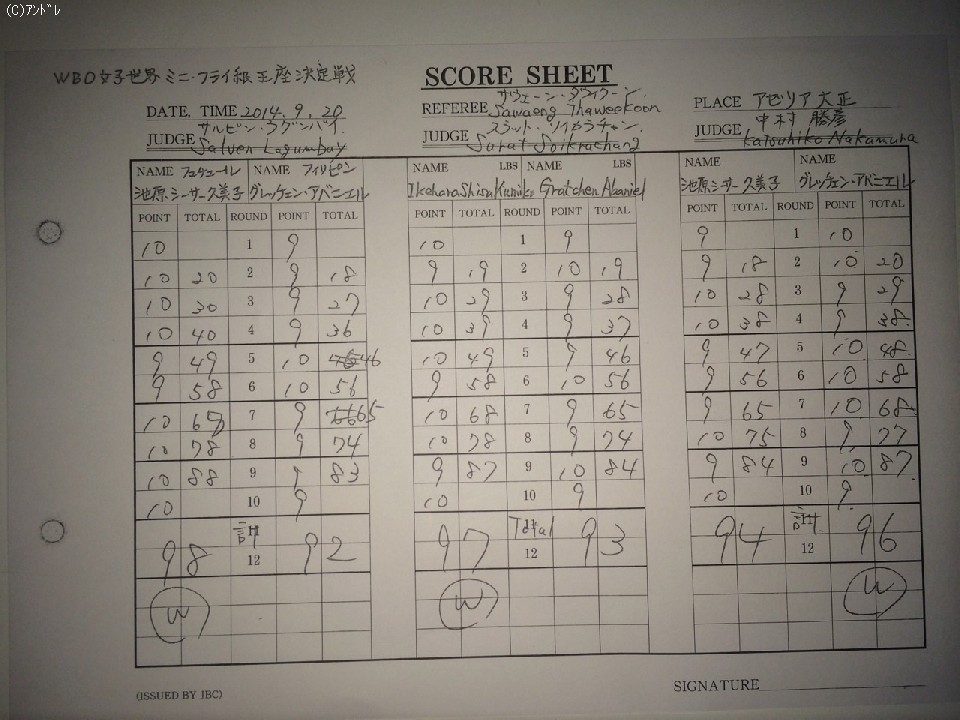 (C)ｱﾝﾄﾞﾚ
WBO女子世界ミニ・フライ級王座決定戦
SCORE SHEET
DATE. TIME 2014. 9. 20
REFEREE サウェーン・タウィクーン
Sawaeng Thaweekoon
PLACE アゼリア大正
JUDGE サルビン・ラグンバイ
Salven Lagumbay
JUDGE スラット・ソイカラチャン
Surat Soikrachang
JUDGE 中村 勝彦
Katsuhiko Nakamura
NAME NAME フィリピン
池原シーサー久美子 グレッチェン・アバニエル
NAME LBS NAME LBS
Kumiko Gretchen Abaniel
NAME NAME
池原シーサー久美子 グレッチェン・アバニエル
POINT TOTAL ROUND POINT TOTAL POINT TOTAL ROUND POINT TOTAL POINT TOTAL ROUND POINT TOTAL
10 1 9 10 1 9 9 1 10
10 20 2 9 18 9 19 2 10 19 9 18 2 10 20
10 30 3 9 27 10 29 3 9 28 10 28 3 9 29
10 40 4 9 36 10 39 4 9 37 10 38 4 9 38
9 49 5 10 46 10 49 5 9 46 9 47 5 10 48
9 58 6 10 56 9 58 6 10 56 9 56 6 10 58
10 68 7 9 65 10 68 7 9 65 9 65 7 10 68
10 78 8 9 74 10 78 8 9 74 10 75 8 9 77
10 88 9 9 83 9 87 9 10 84 9 84 9 10 87
10 10 9 10 10 9 10 10 9
98 計 12 92 97 Total 12 93 94 計 12 96
W W W
(ISSUED BY IBC)
SIGNATURE